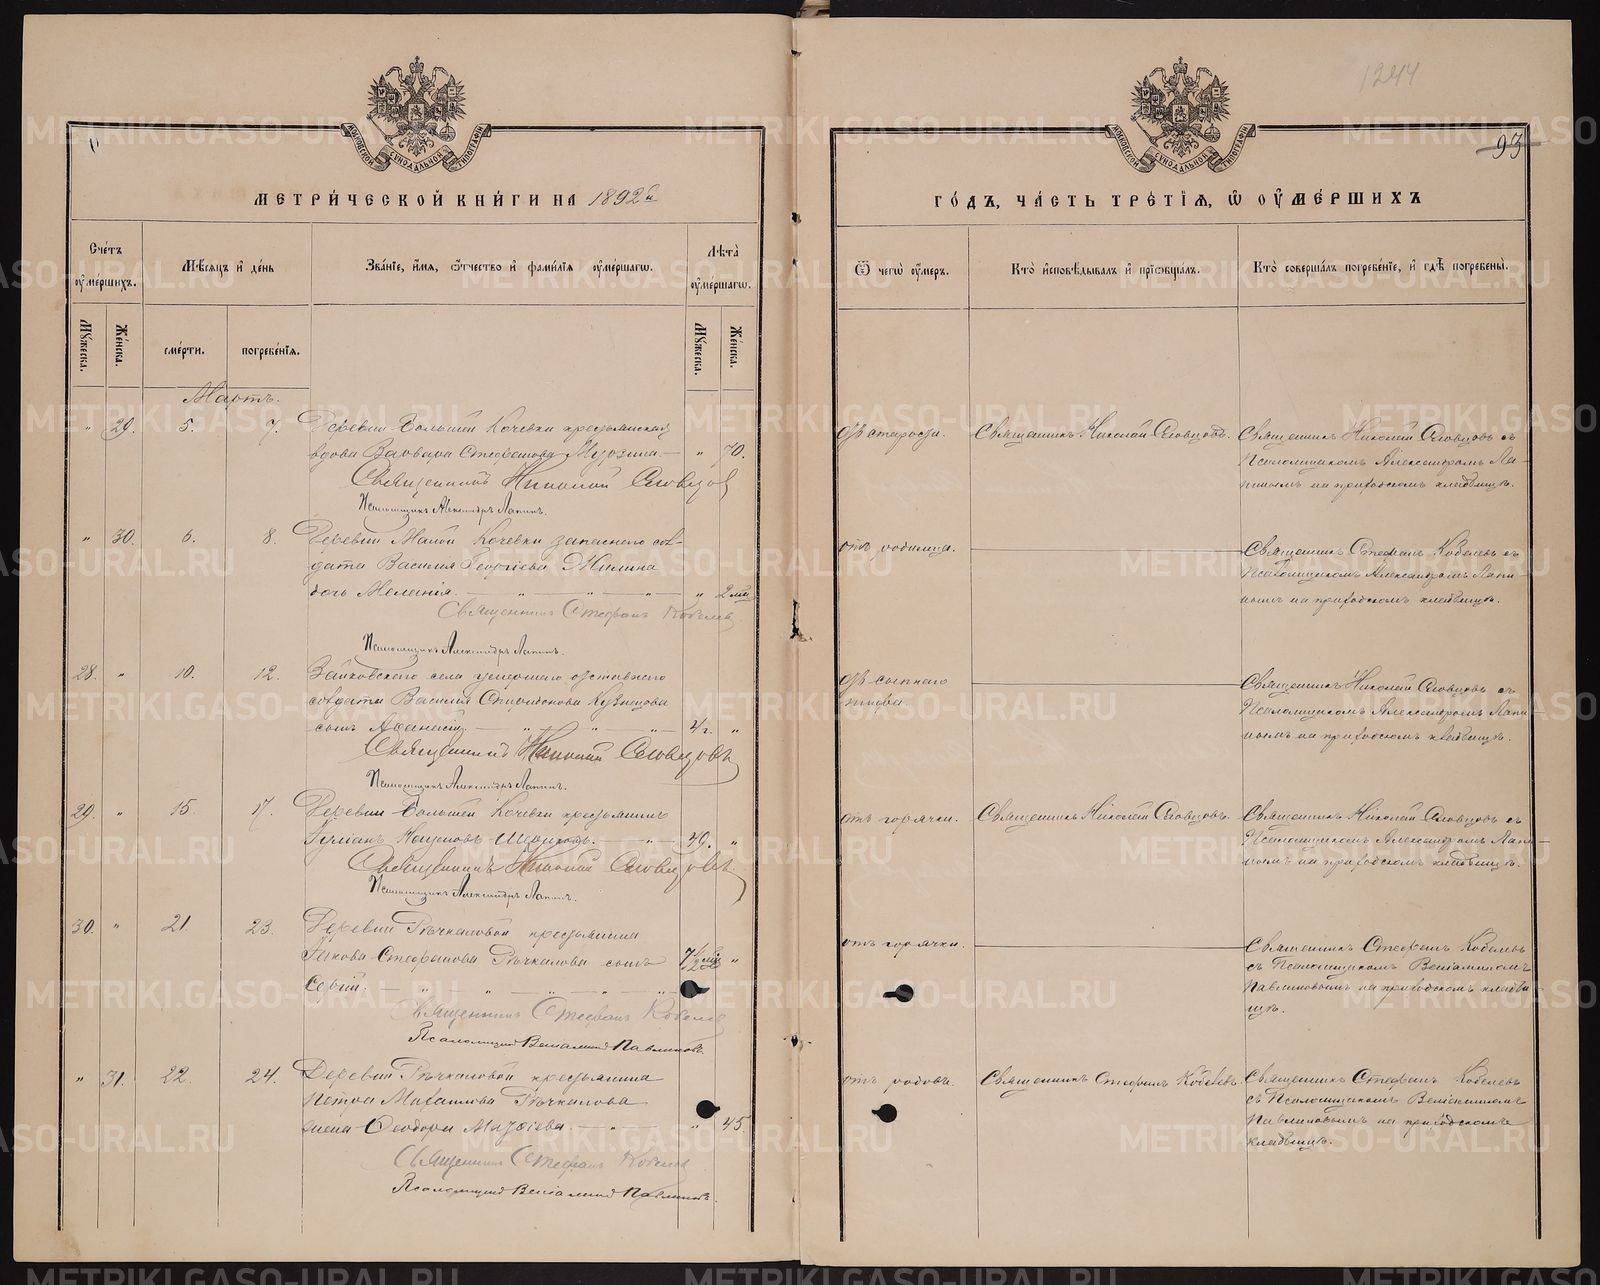 1244
93
МЕТРИ́ЧЕСКОЙ КНИ́ГИ НА 1892й
ГО́ДЪ, ЧА́СТЬ ТРЕ́ТІЯ, Ѿ ОУМЕ́РШИХЪ
Сче́тъ оумéршихъ.
Мѣ́сяцъ и де́нь
Зва́ніе, и́мя, о́тчество и фами́лія оуме́ршагѡ.
Лѣта̀ оуме́ршагѡ.
Ѿ чегѡ̀ оу́меръ.
Кто̀ исповѣ́дывалъ и пріѡбща́лъ.
Кто̀ соверша́лъ погребе́ніе, и гдѣ̀ погребены̀.
Мꙋ́жеска.
Же́нска.
сме́рти.
погребе́нія.
Мꙋ́жеска.
Же́нска.
Мартъ.
„ 29. 5. 7. Деревни Большей Кочевки крестьянская
вдова Варвара Стефанова — „ 70.
Священникъ Николай Словцов
Псаломщикъ Александръ Лапинъ.
отъ старости. Священникъ Николай Словцовъ. Священникъ Николай Словцовъ съ
Псаломщикомъ Александромъ Ла-
пинымъ на приходскомъ кладбищѣ.
„ 30. 6. 8. Деревни Малой Кочевки запаснаго сол-
дата Василія Георгіева Жилина
дочь Меланія. — „ — „ — „ — „ 2 мѣ
Священникъ Стефанъ Кобелевъ
Псаломщикъ Александръ Лапинъ.
отъ родимца. Священникъ Стефанъ Кобелевъ съ
Псаломщикомъ Александромъ Лапи-
нымъ на приходскомъ кладбищѣ.
28. „ 10. 12. Зайковскаго села умершаго отставнаго
солдата Василія Спиридонова Кузнецова
сынъ Аѳанасій. — „ — „ — „ — 4 г. „
Священникъ Николай Словцовъ
Псаломщикъ Александръ Лапинъ.
отъ сыпнаго
тифа. Священникъ Николай Словцовъ съ
Псаломщикомъ Александромъ Лапи-
нымъ на приходскомъ кладбищѣ.
29. „ 15. 17. Деревни Большей Кочевки крестьянинъ
— „ — 40. „
Священникъ Николай Словцовъ.
Псаломщикъ Александръ Лапинъ.
отъ горячки. Священникъ Николай Словцовъ. Священникъ Николай Словцовъ съ
Псаломщикомъ Александромъ Лапи-
нымъ на приходскомъ кладбищѣ.
30. „ 21 23. Деревни Рѣчкаловой крестьянина
Іакова Стефанова Рѣчкалова сынъ 7½ мѣ „
Сергій. — „ — „ — „ — „
Священникъ Стефанъ Кобелев
Псаломщикъ Веніаминъ Павлиновъ.
отъ горячки. Священникъ Стефанъ Кобелевъ
съ Псаломщикомъ Веніаминомъ
Павлиновымъ на приходскомъ кладби-
щѣ.
„ 31. 22. 24. Деревни Рѣчкаловой крестьянина
Петра Михаилова Рѣчкалова
жена Ѳеодора Матѳіева. — „ — „ 45
Священникъ Стефанъ Кобелев
Псаломщикъ Веніаминъ Павлиновъ.
отъ родовъ. Священникъ Стефанъ Кобелевъ. Священникъ Стефанъ Кобелевъ
съ Псаломщикомъ Веніаминомъ
Павлиновымъ на приходскомъ
кладбищѣ.
METRIKI.GASO-URAL.RU